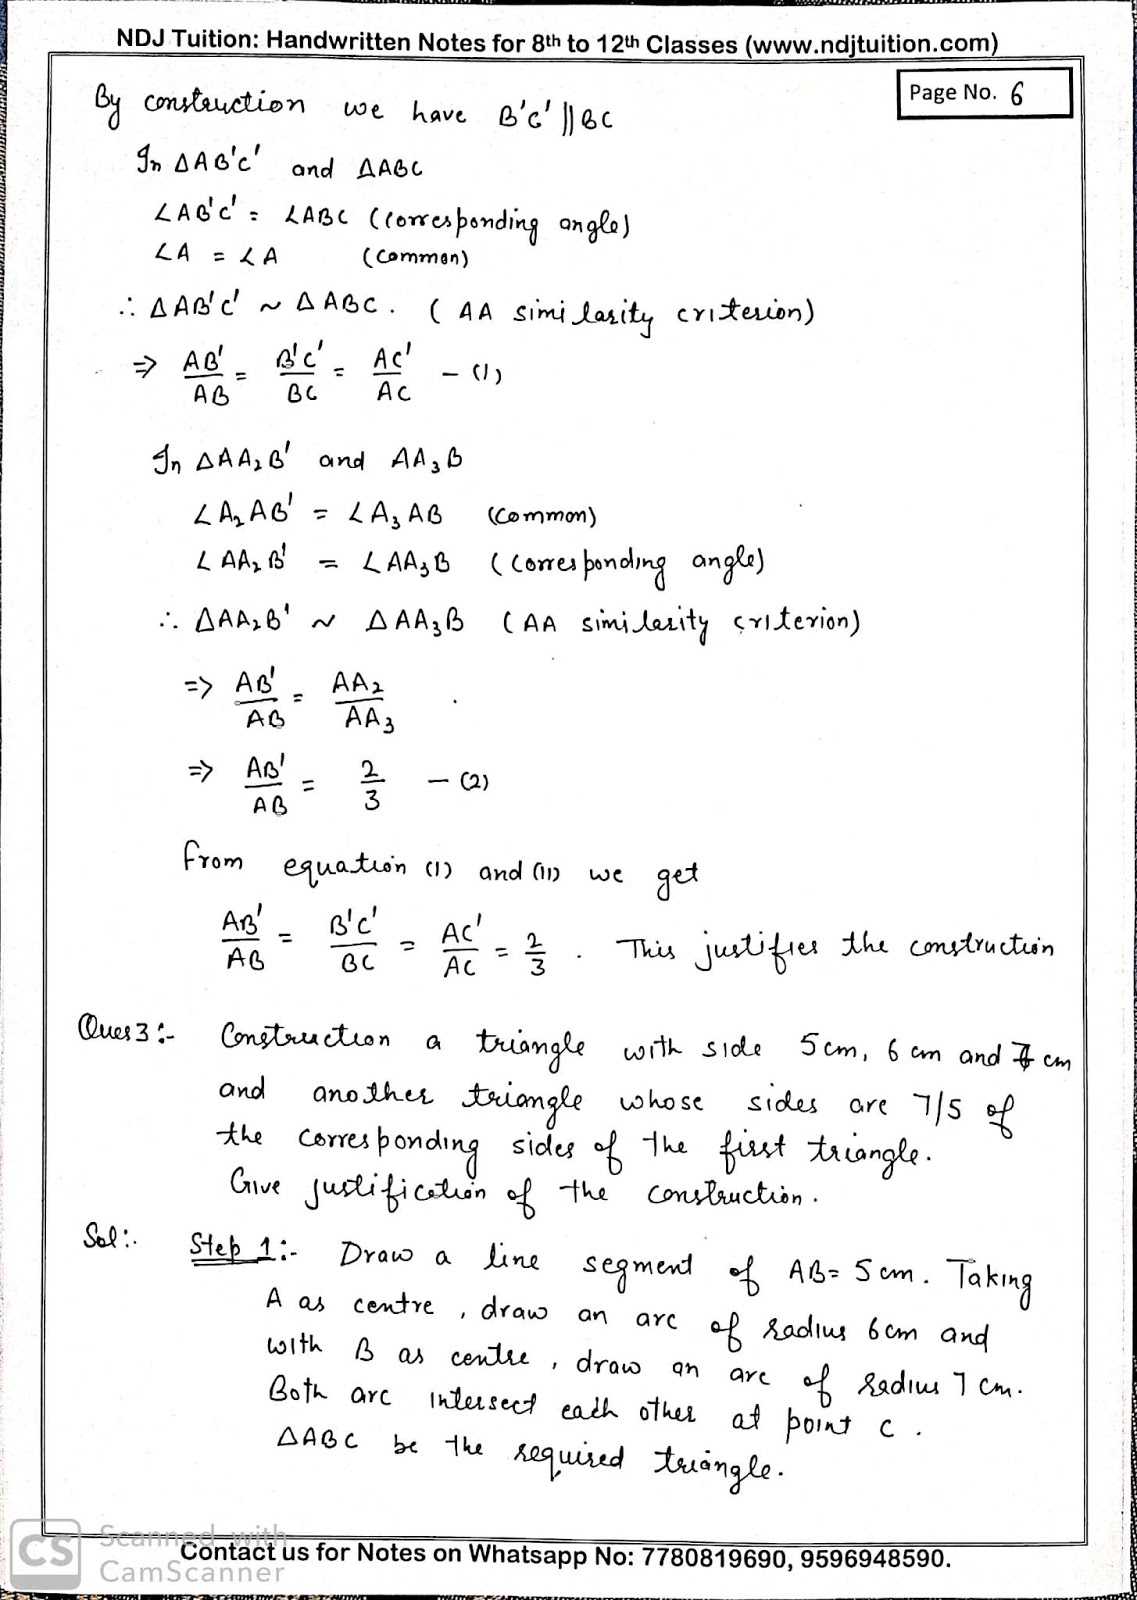 NDJ Tuition: Handwritten Notes for 8th to 12th Classes (www.ndjtuition.com)
Page No. 6
By construction we have B'C' || BC
In ΔAB'C' and ΔABC
∠AB'C' = ∠ABC (corresponding angle)
∠A = ∠A (common)
∴ ΔAB'C' ~ ΔABC. (AA similarity criterion)
⇒ AB'/AB = B'C'/BC = AC'/AC – (1)
In ΔAA₂B' and AA₃B
∠A₂AB' = ∠A₃AB (common)
∠AA₂B' = ∠AA₃B (corresponding angle)
∴ ΔAA₂B' ~ ΔAA₃B (AA similarity criterion)
⇒ AB'/AB = AA₂/AA₃
⇒ AB'/AB = 2/3 – (2)
from equation (1) and (11) we get
AB'/AB = B'C'/BC = AC'/AC = 2/3 . This justifies the construction
Ques 3 :- Construction a triangle with side 5cm, 6 cm and 7 cm
and another triangle whose sides are 7/5 of
the corresponding sides of the first triangle.
Give justification of the construction.
Sol:. Step 1:- Draw a line segment of AB= 5cm. Taking
A as centre, draw an arc of radius 6cm and
with B as centre, draw an arc of radius 7 cm.
Both arc intersect each other at point C.
ΔABC be the required triangle.
CS Scanned with
CamScanner
Contact us for Notes on Whatsapp No: 7780819690, 9596948590.